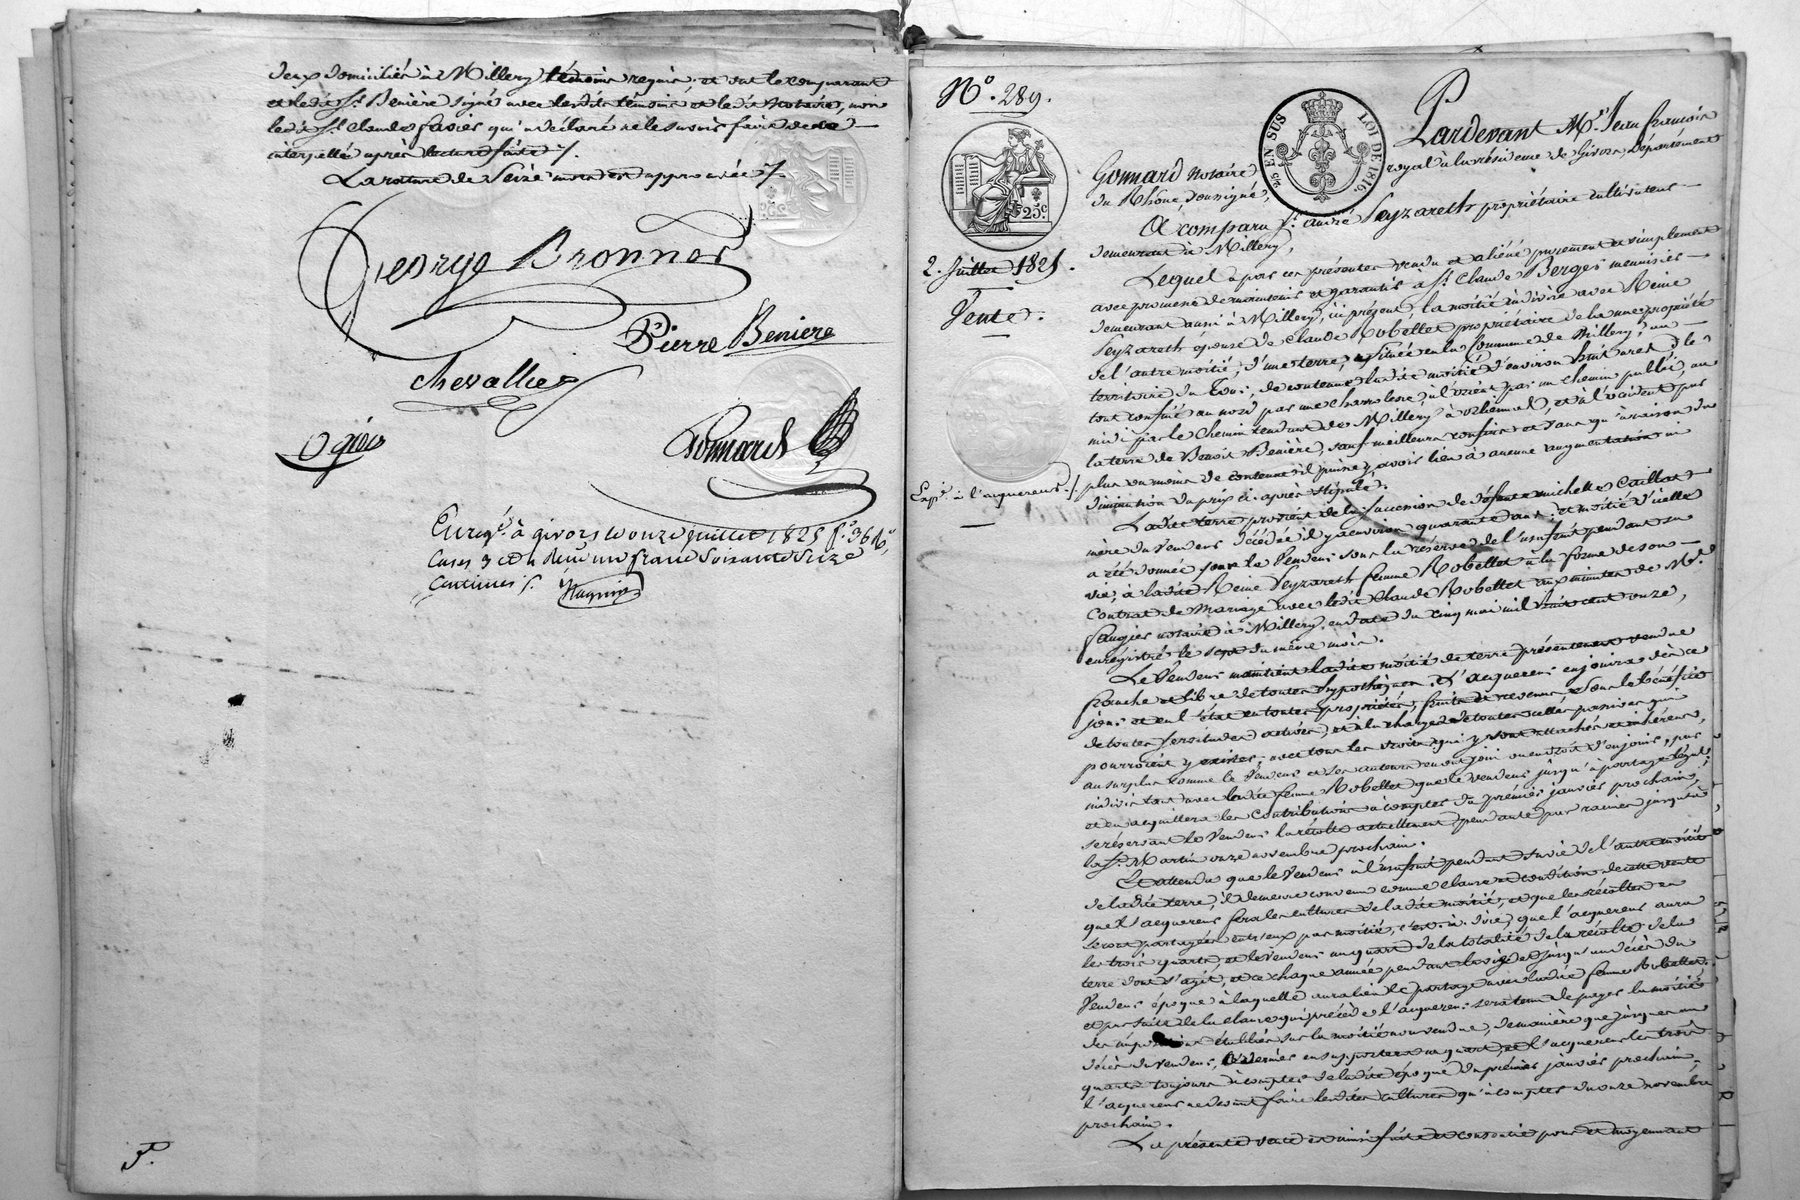 deux domiciliés à Millery témoins requis, et ont le comparant
et ledit Sr. Benière signé avec lesdits témoins et ledit notaire, non
ledit Sr. Claude qui a déclaré ne le savoir faire de ce
interpellé après lecture faite ./.
La rature de seize mots est approuvée ./.
George Bronner
Pierre Beniere
chevallier
Ogier
Gonnard
Enregé. à givors le onze juillet 1825 fo. 36
Cases 3 et 4 Reçu un franc soixante seize
centimes ./.
No. 289.
25 EN SUS LOI DE 1816.
25c.
2. Juillet 1825.
Vente.
Expé. à l'acquereur ./.
Pardevant Me. Jean françois
Gonnard notaire royal à la résidence de Givors, département
du Rhône, soussigné,
A comparu Sr. andré Peyzareth propriétaire cultivateur
demeurant à Millery,
Lequel a par ces présentes vendu et aliéné purement et simplement
avec promesse de maintenir et garantir à Sr. Claude Berger menuisier
demeurant aussi à Millery, ici présent, la moitié indivise avec Reine
Peyzareth épouse de Claude Robellet propriétaire de la nue propriété
de l'autre moitié, d'une terre, située en la Commune de Millery, au
territoire du de contenue ladite moitié d'environ huit ares, le
tout confiné au nord par une à l'orient par un chemin public, au
midi par le chemin tendant de Millery à et à l'occident par
la terre de Benoit Benière, sauf meilleurs confins et sans qu'à raison du
plus ou moins de contenue il puisse y avoir lieu à aucune augmentation ni
diminution du prix ci après stipulé.
Ladite terre provient de la succession de défunte michelle Caillat
mère du vendeur décédée il y a environ quarante ans; et moitié d'icelle
a été donnée par le Vendeur sous la réserve de l'usufruit pendant sa
vie, à ladite Reine Peyzareth femme Robellet à la forme de son
Contrat de Mariage avec ledit Claude Robellet aux minutes de Me.
faugier notaire à Millery, en date du cinq mai mil huit cent onze,
enregistré le sept du même mois.
Le Vendeur maintient ladite moitié de terre présentement vendue
franche et libre de toutes hypothèques. L'acquereur en jouira dès ce
jour et en l'état en toutes propriétés, fruits et revenus sous le bénéfice
de toutes servitudes actives, et à la charge de toutes celles passives qui
pourroient y exister, avec tous les droits qui y sont attachés et inhérens,
au surplus comme le Vendeur et ses auteurs en ont joui ou eu droit d'en jouir, par
indivis tant avec ladite femme Robellet que le vendeur jusqu'à partage légal;
et en acquittera les Contributions à compter du premier janvier prochain,
se réservant le Vendeur la récolte actuellement pendante par racines jusqu'à
la St. Martin onze novembre prochain.
Et attendu que le Vendeur a l'usufruit pendant sa vie de l'autre moitié
de ladite terre, il demeure convenu comme clause et condition de cette vente
que l'acquereur fera les cultures de ladite moitié, et que les récoltes en
seront partagées entr'eux par moitié, c'est-à-dire, que l'acquereur aura
les trois quarts, et le Vendeur un quart de la totalité de la récolte de la
terre dont s'agit, et ce chaque année pendant la vie et jusqu'au décès du
Vendeur époque à laquelle aura lieu le partage avec ladite femme Robellet.
et par suite de la clause qui précède l'acquereur sera tenu de payer la moitié
des impositions établies sur la moitié non vendue, de manière que jusques au
décès du vendeur, ce dernier en supportera un quart, et l'acquereur les trois
quarts toujours à compter de ladite époque du premier janvier prochain,
l'acquereur ne devant faire lesdites cultures qu'à compter du onze novembre
prochain.
La présente vente est ainsi faite et consentie pour et moyennant